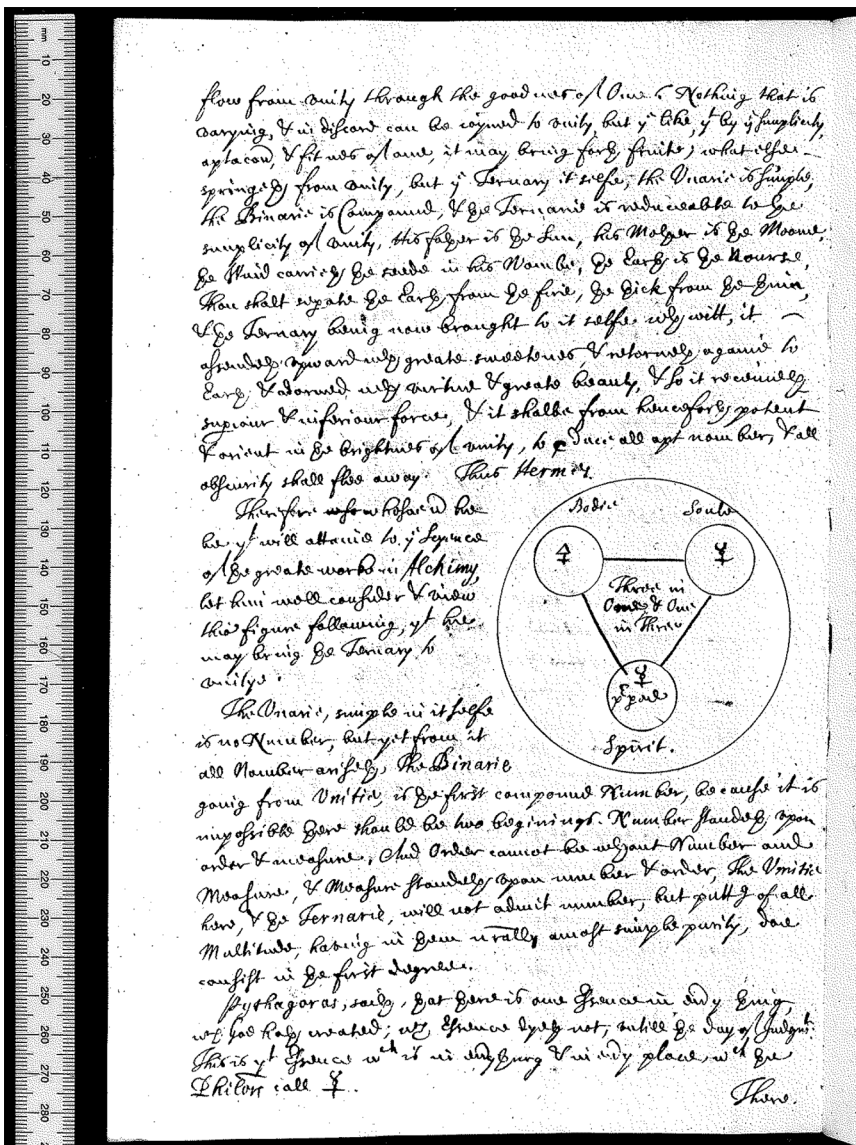 flow from vnity through the goodnes of One? Nothing that is
varying, & in discord can be ioyned to vnity, but yᵉ like, yᵗ by yᵉ simplicity,
aptacon, & fitnes of one, it may bring forth fruite; what else
springeth from vnity, but yᵉ Ternary it selfe; the Vnarie is simple,
the Binarie is Compound, & the Ternarie is reduceable to the
simplicity of vnity, His father is the Sun, his Mother is the Moone,
the Wind carrieth the seede in his Wombe, the Earth is the Nourse,
Thou shalt sepate the Earth from the fire, the thick from the thinn,
& the Ternary being now brought to it selfe with witt, it
assendeth vpward with greate sweetenes, & retorneth againe to
Earth, & adorned with virtue & greate beauty, & so it receiueth
supiour & inferiour force, & it shalbe from henceforth potent
& orient in the brightnes of vnity, to pduce all apt number, & all
obscurity shall flee away. Thus Hermes.
Therefore whosoeu he
be yᵗ will attaine to yᵉ Scyence
of the greate worke in Alchimy,
let him well consider & view
this figure following, yᵗ hee
may bring the Ternary to
vnitye.
Bodie
Soule
Three in
One, & One
in Three
Spirit.
The Vnarie, simple in it selfe
is no Number, but yet from it
all Number ariseth, The Binarie
going from Vnitie, is the first compound Number, because it is
impossible there should be two beginings. Number standeth vpon
order & measure, And Order cannot be without Number and
Measure, & Measure standeth vpon number & order, The Vnitie
here, & the Ternarie, will not admit number, but putting of all
Multitude, having in them nrally amost simple purity, doe
consist in the first degree.
Pythagoras, saith, that there is one Essence in euy thing,
wᶜʰ God hath created; wᶜʰ Essence dyeth not, vntill the day of Judgmᵗ.
This is yᵗ Essence wᶜʰ is in euy thing & in euy place, wᶜʰ the
Philors call ☿.
There.